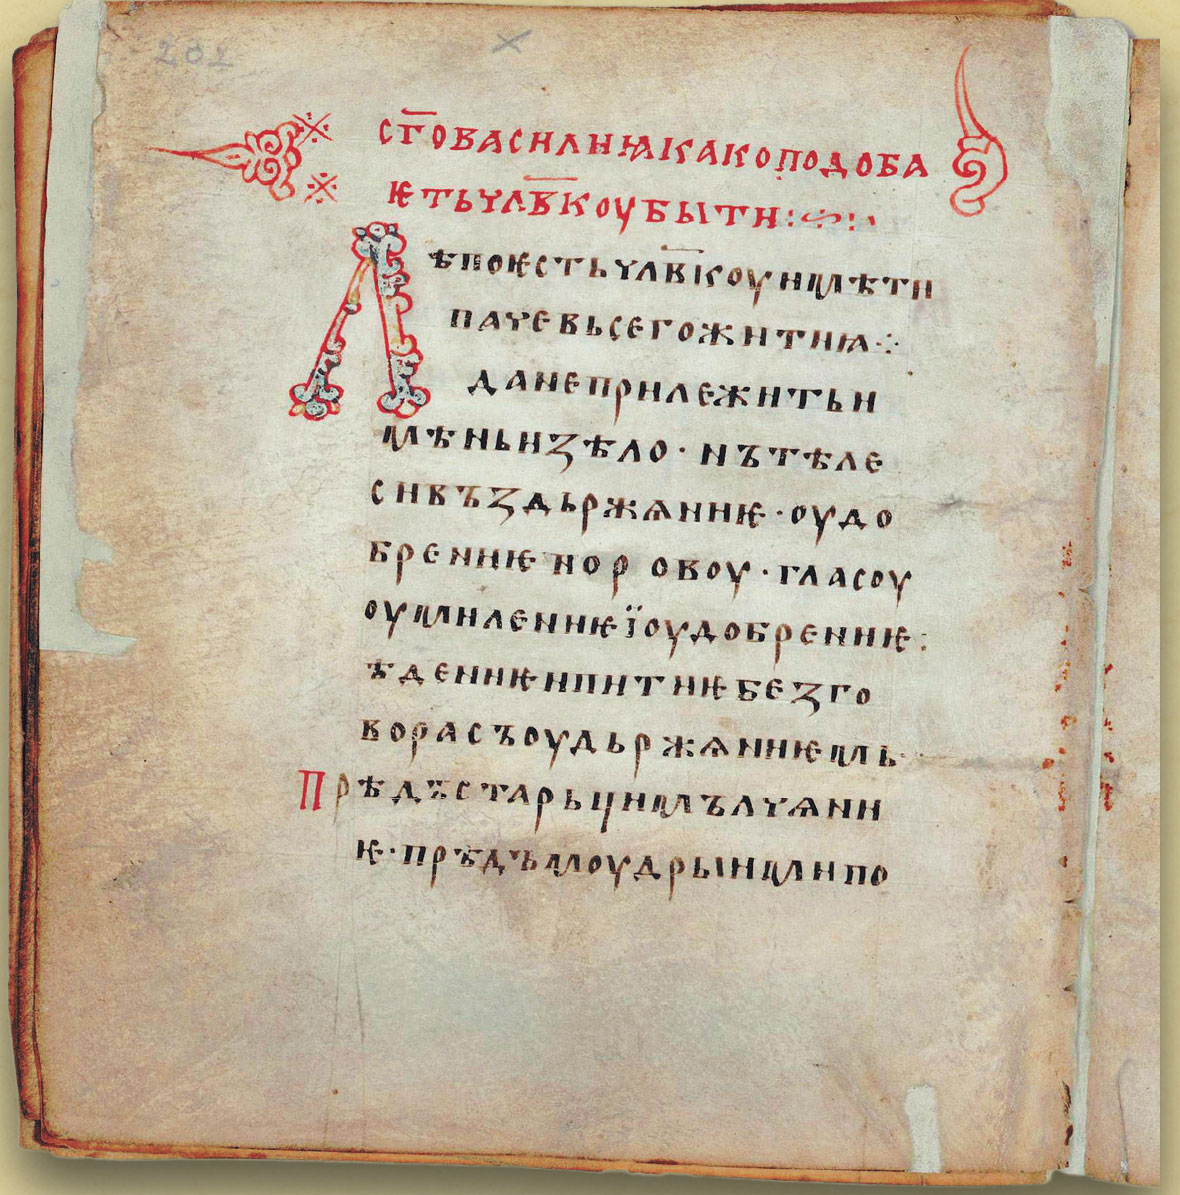 202
стⷢ҇овасилиꙗкакоподоба
ѥтьчл҃вкоубыти
Лѣпоѥстьчл҃вкоуимѣти
пачевьсегожитиꙗ
данеприлежитьи
мѣньиꙁѣло · нътѣле
сивъꙁдьржѧниѥ · оудо
брениѥнор овоу · гласоу
оумилениѥїоудобрениѥ :
ѣдениѥипитиѥбеꙁго
ворасъоудьржѧниѥмь
Прѣдъстарьцимълчѧни
ѥ · прѣдъмоудрыимипо